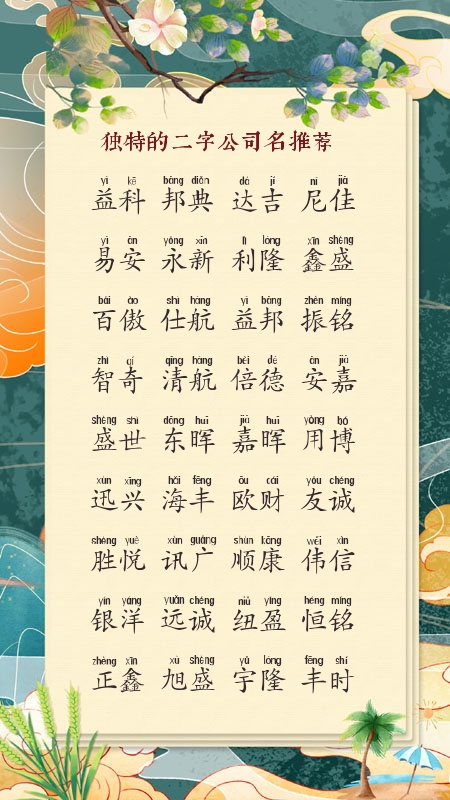 独特的二字公司名推荐
yì kē bāng diǎn dá jí ní jiā
益科 邦典 达吉 尼佳
yì ān yǒng xīn lì lóng xīn shèng
易安 永新 利隆 鑫盛
bǎi ào shì háng yì bāng zhèn míng
百傲 仕航 益邦 振铭
zhì qí qīng háng bèi dé ān jiā
智奇 清航 倍德 安嘉
shèng shì dōng huī jiā huī yòng bó
盛世 东晖 嘉晖 用博
xùn xīng hǎi fēng ōu cái yǒu chéng
迅兴 海丰 欧财 友诚
shèng yuè xùn guǎng shùn kāng wěi xìn
胜悦 讯广 顺康 伟信
yín yáng yuǎn chéng niǔ yíng héng míng
银洋 远诚 纽盈 恒铭
zhèng xīn xù shèng yǔ lóng fēng shí
正鑫 旭盛 宇隆 丰时